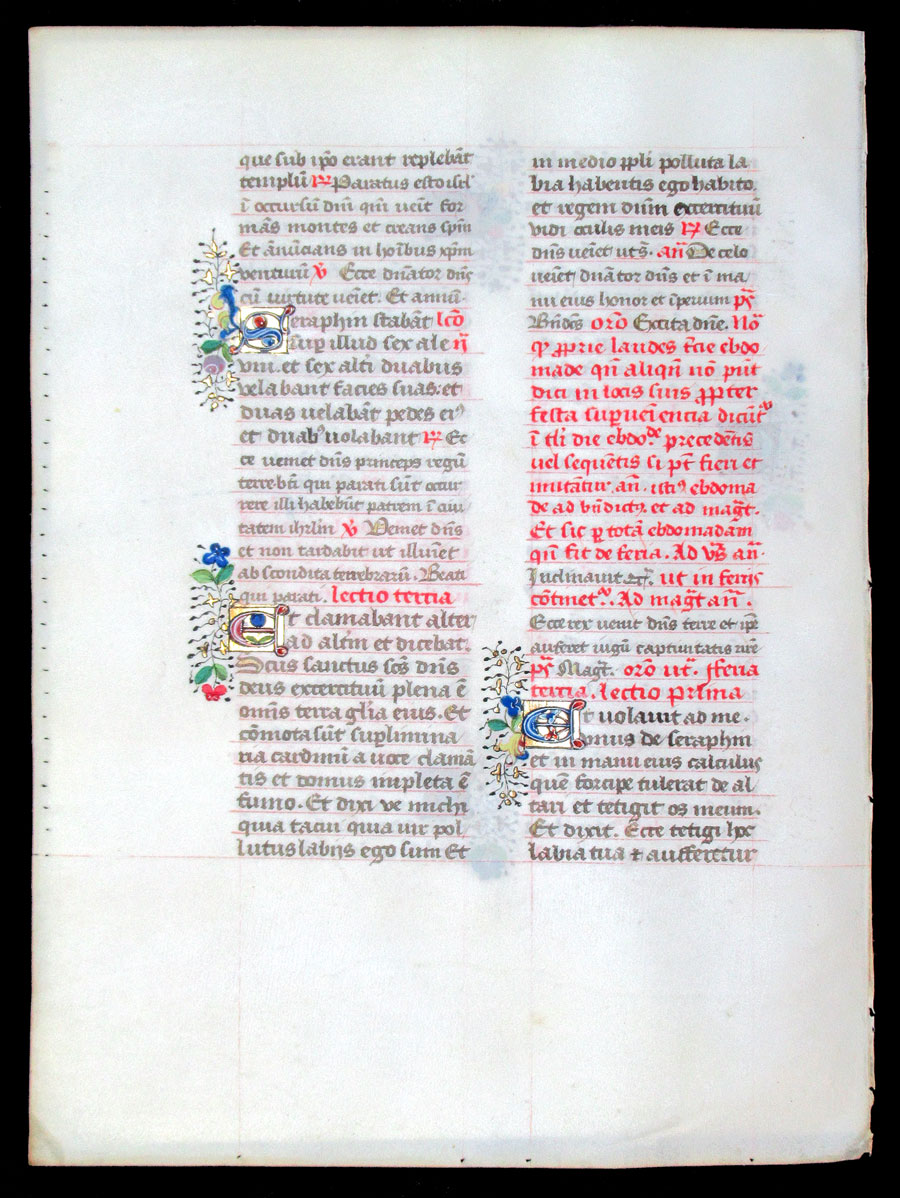 que sub ipo erant replebāt
templū ℟ Paratus esto isrl'
ī occursū dn̄i qm̄ ueīt for
mās montes et creans spm̄
Et ānūcians in hoībus xpm̄
venturum ℣ Ecce dn̄ator dn̄s
cū virtute veiet. Et annū.
Seraphin stabāt lcō
sup illud sex ale ij
vni. et sex altī duabus
velabant facies suas: et
duas uelabāt pedes ei⁹
et duab⁹ uolabant ℟ Ec
ce veniet dn̄s princeps regū
terre bti qui parati sūt occur
rere illi habebūt patrem ī ciui
tatem ihrlm̄ ℣ Veniet dn̄s
et non tardabit ut illuīet
abscondita tenebrarū. Beati
qui parati. lectio tercia
Et clamabant alter
ad altm̄ et dicebāt.
Scus sanctus scs̄ dn̄s
deus excercituū plena ē
omīs terra glīa eius. Et
cōmota sūt suplimina
ria cardinū a uoce clamā
tis et domus impleta ē
fumo. Et dixi ve michi
quia tacui quia uir pol
lutus labijs ego sum Et
in medio ppli polluta la
bia habentis ego habito.
et regem dn̄m excercituū
vidi oculis meis ℟ Ecce
dn̄s ueiet uts̄. an̄ De celo
ueiet dn̄ator dn̄s et ī ma
nu eius honor et īperium ps̄
Bn̄des orō Excita dn̄e. Nō
qꝫ pprie laudes fcie ebdo
made qn̄ aliqn̄ nō pn̄t
dici in locis suis ppter
festa supueīencia dicūt᷑
ī tli die ebdoᵈᵉ precedētis
uel sequētis si pt̄ fieri et
mutant᷑ an̄. isti⁹ ebdoma
de ad bn̄dict⁹. et ad maḡt.
Et sic p totā ebdomadam
qn̄ fit de feria. Ad vs̄ an̄.
Inclinauit ut in ferijs
cōtinet᷑. Ad maḡt an̄.
Ecce rex veniet dn̄s terre et ip̄e
auferet iugū captiuitatis nr̄e
ps̄ Maḡt. orō ut. fferia
tercia. lectio prīma
Et uolauit ad me.
vnus de seraphin
et in manu eius calculus
quē forcipe tulerat de al
tari et tetigit os meum.
Et dixit. Ecce tetigi hec
labia tua ⁊ aufferetur